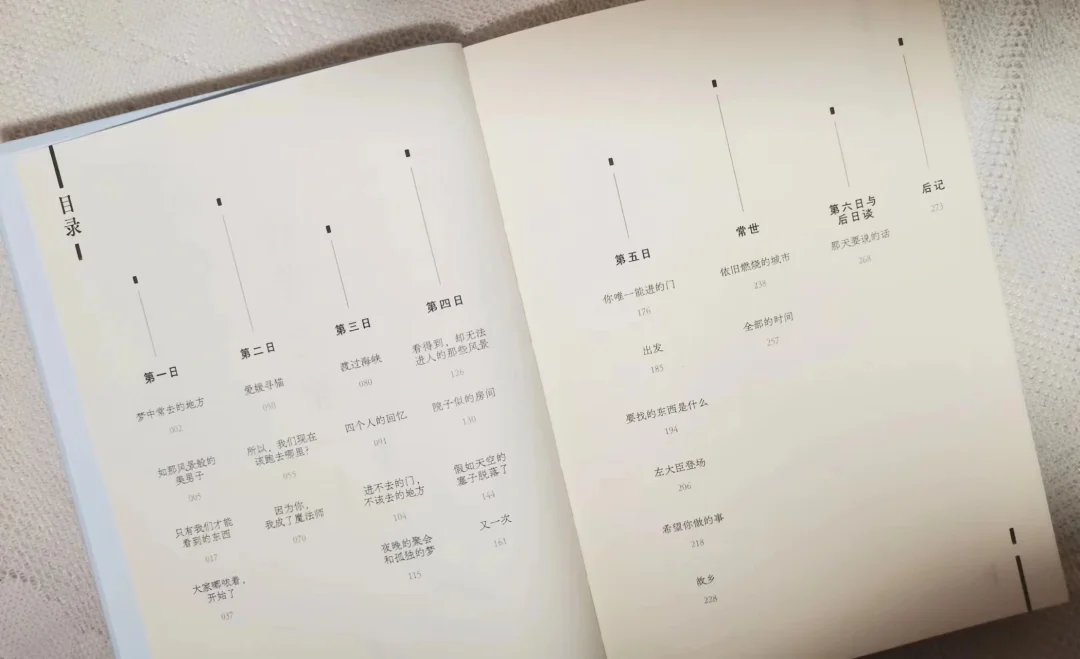 目录
第一日
梦中常去的地方
002
如那风景般的
美男子
005
只有我们才能
看到的东西
017
大家嘟哝着，
开始了
037
第二日
爱媛寻猫
050
所以，我们现在
该跑去哪里？
055
因为你，
我成了魔法师
070
第三日
渡过海峡
080
四个人的回忆
091
进不去的门，
不该去的地方
104
夜晚的聚会
和孤独的梦
115
第四日
看得到，却无法
进入的那些风景
126
院子似的房间
130
假如天空的
塞子脱落了
144
又一次
161
第五日
你唯一能进的门
176
出发
185
要找的东西是什么
194
左大臣登场
206
希望你做的事
218
故乡
228
常世
依旧燃烧的城市
238
全部的时间
257
第六日与
后日谈
那天要说的话
268
后记
273